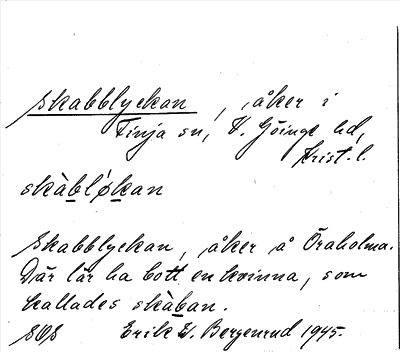 Skabblyckan, åker i
Finja sn, V. Göinge hd,
Krist. l.
skàbløkan
Skabblyckan, åker å Öraholma.
Där lär ha bott en kvinna, som
kallades skàban.
SOS Erik W. Bergenrud 1945.